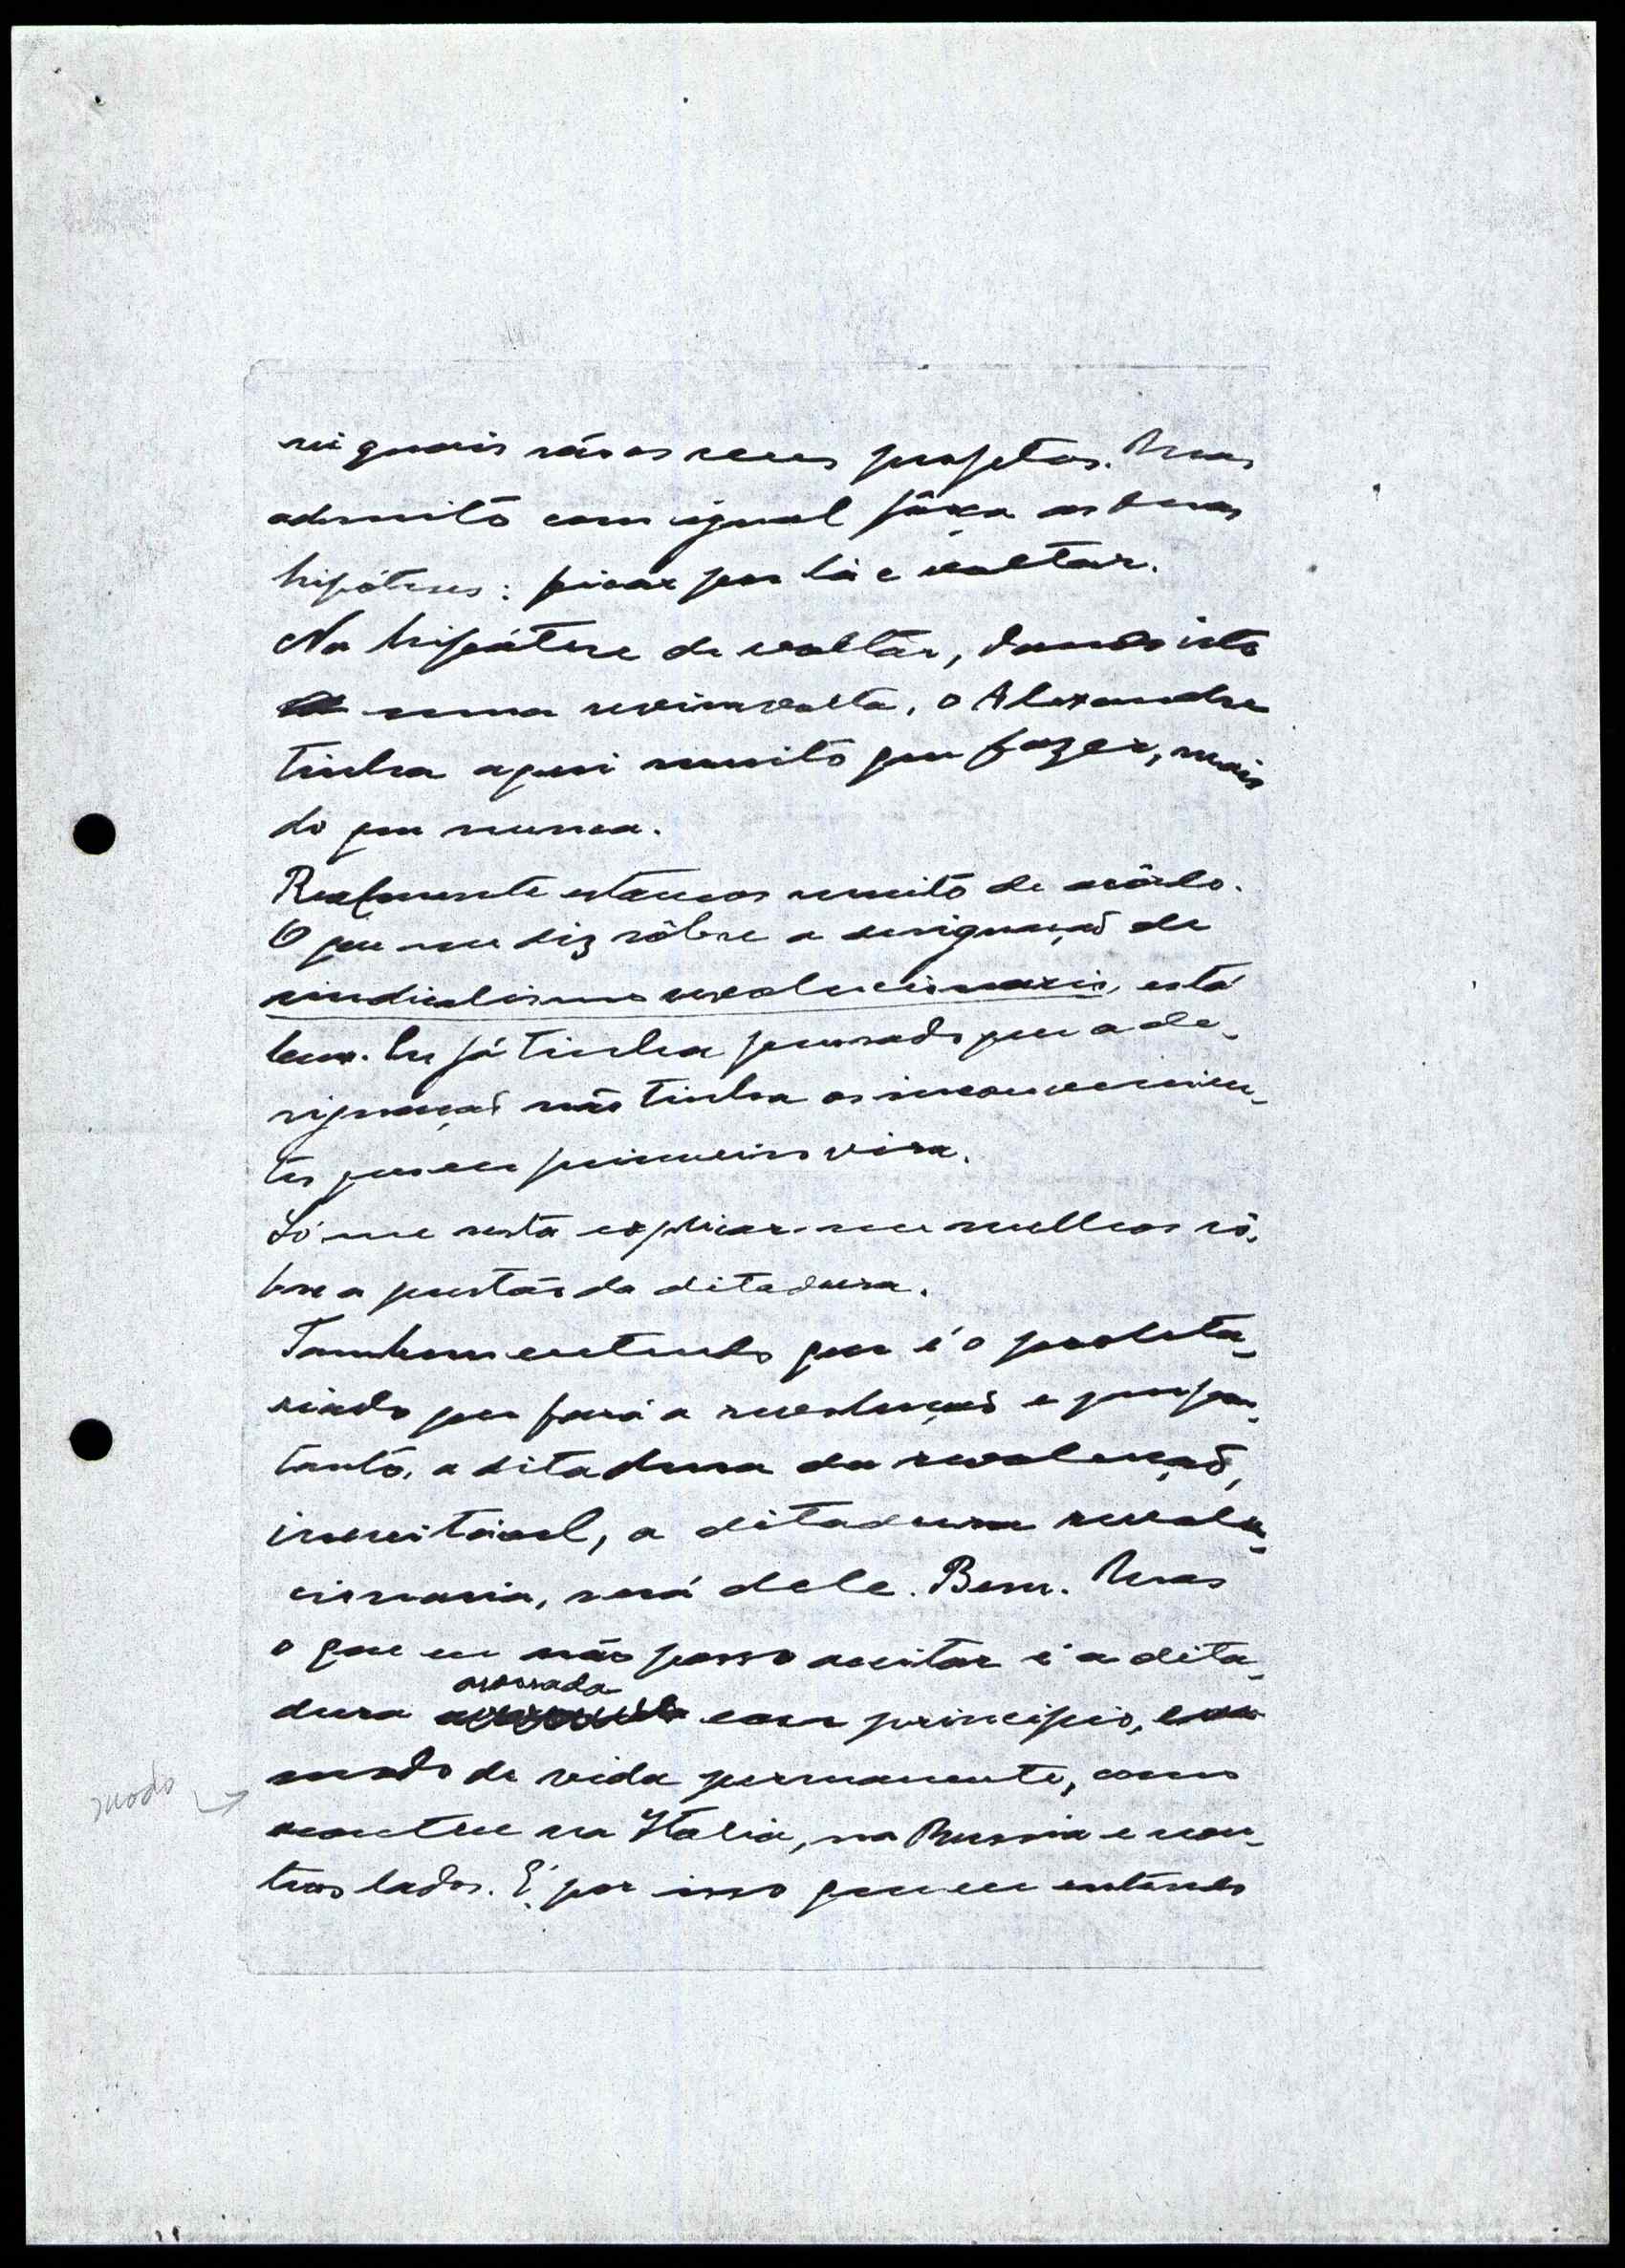 sei quais são os seus projetos. Mas
admito com igual fôrça as duas
hipóteses: ficar por lá e voltar.
Na hipótese de voltar, dando isto
uma reviravolta, o Alexandre
tinha aqui muito que fazer, mais
do que nunca.
Realmente estamos muito de acôrdo.
O que me diz sôbre a designação de
sindicalismo revolucionario, está
bem. Eu já tinha pensado que a de-
signação não tinha os inconvenien-
tes que eu primeiro vira.
Só me resta explicar-me melhor sô-
bre a questão da ditadura.
Tambem entendo que é o proleta-
riado que fará a revolução e que por-
tanto, a ditadura da revolução,
inevitável, a ditadura revolu-
cionaria, será dele. Bem. Mas
o que eu não posso aceitar é a dita-
dura arvorada em principio, em
modo de vida permanente, como
modo
acontece na Italia, na Russia e nou-
tros lados. É por isso que eu entendo